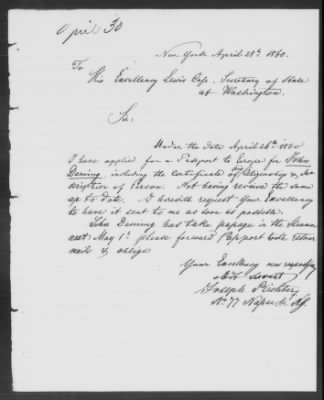 April 30
New York April 28th 1860.
To
His Excellency Lewis Cass, Secretary of State
at Washington.
Sir:
Under the date April 26th 1860
I have applied for a Passport to Europe for John
Deming, including the Certificate of &
of Person. Not having received the same
up to date. I herewith request Your Excellency
to have it sent to me as soon as possible.
John Deming has take passage in the Steamer
next May 1st please forward Passport with return
mail & oblige
Your Excellency
obdt Servant
Joseph
No 77 St. N.Y.